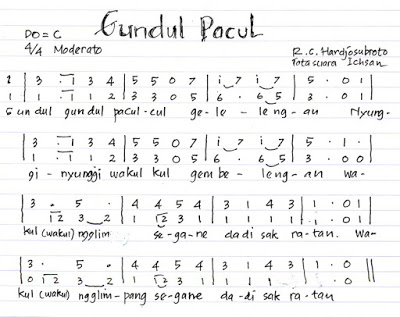 Gundul Pacul
DO = C
4/4 Moderato
R.C. Hardjosubroto
Tata suara Ichsan
1 | 3 · 1 3 4 | 5 5 0 7 | i 7 i 7 | 5 · 0 1 |
1 | 1 · 1 1 2 | 3 3 0 5 | 6 · 6 5 | 3 · 0 1 |
Gundul gundul pacul-cul ge-le-leng-an Nyung-
| 3 · 1 3 4 | 5 5 0 7 | i 7 i 7 | 5 · 0 1 |
| 1 · 1 1 2 | 3 3 0 5 | 6 · 6 5 | 3 · 0 0 |
gi-nyunggi wakul kul gembe-leng-an wa-
3 · 5 · | 4 4 5 4 | 3 1 4 3 | 1 · 0 1 |
1 2 3 2 | 1 2 2 3 1 | 3 1 4 3 | 1 · 0 1 |
kul (wakul) ngglim se-ga-ne dadi sak ratan. Wa-
3 · 5 · | 4 4 5 4 | 3 1 4 3 | 1 · 0 ||
0 1 2 3 2 | 1 2 2 3 1 | 3 1 4 3 | 1 · 0 ||
kul (wakul) ngglim-pang segane da-di sak ra-tan